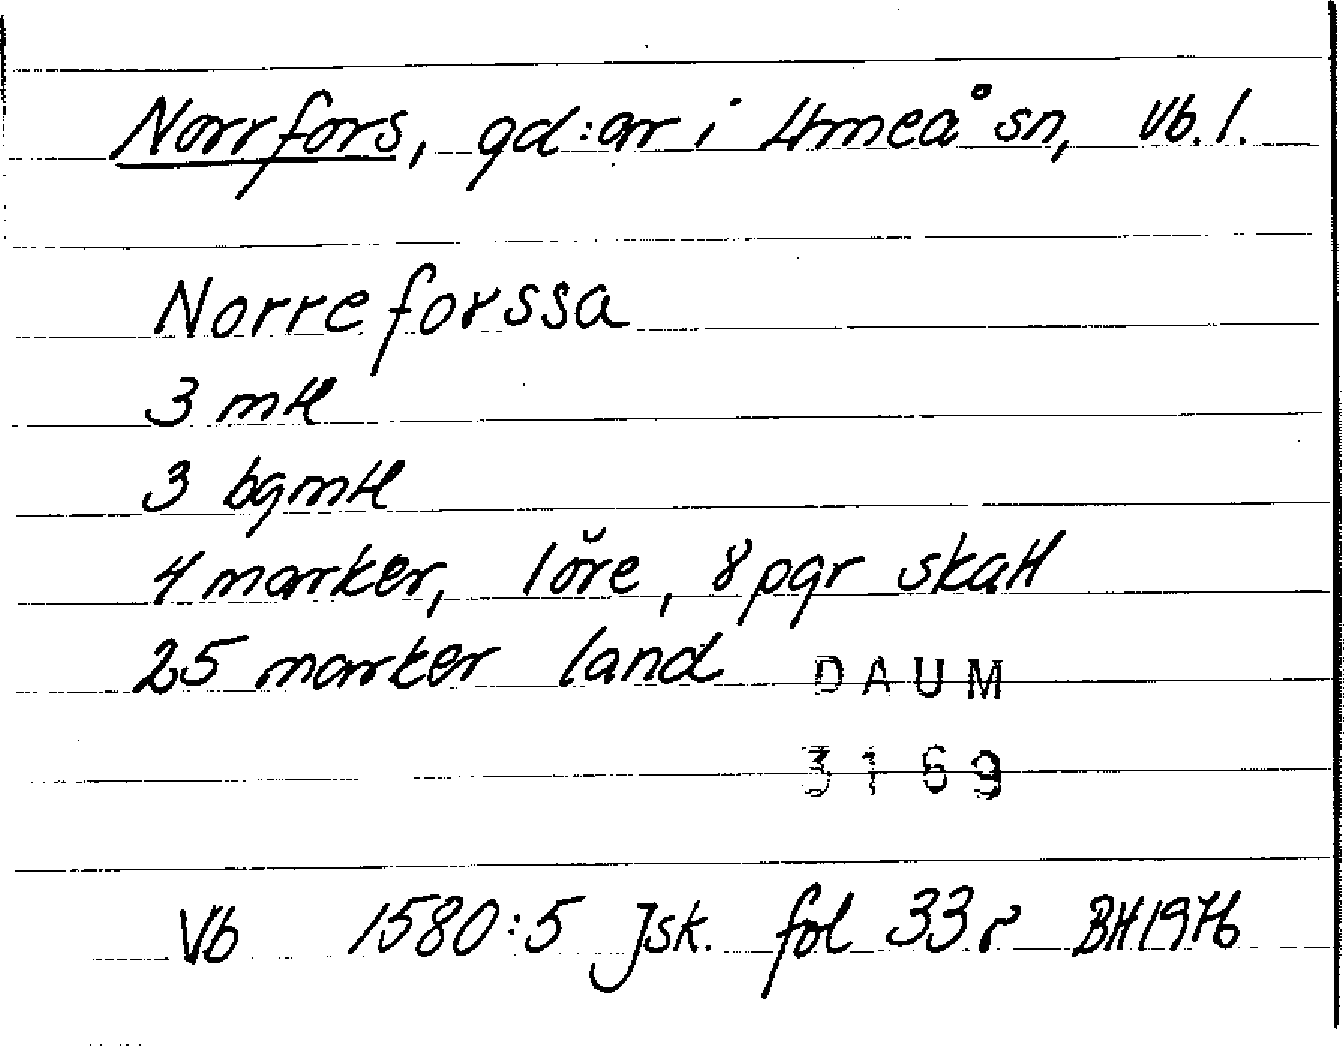 Norrfors, gd:ar i Umeå sn, Vb. l.
Norreforssa
3 mtl
3 bgmtl
4 marker, 1 öre, 8 pgr skatt
25 marker land
DAUM
3169
Vb 1580:5 Jsk. fol 33r BH1976